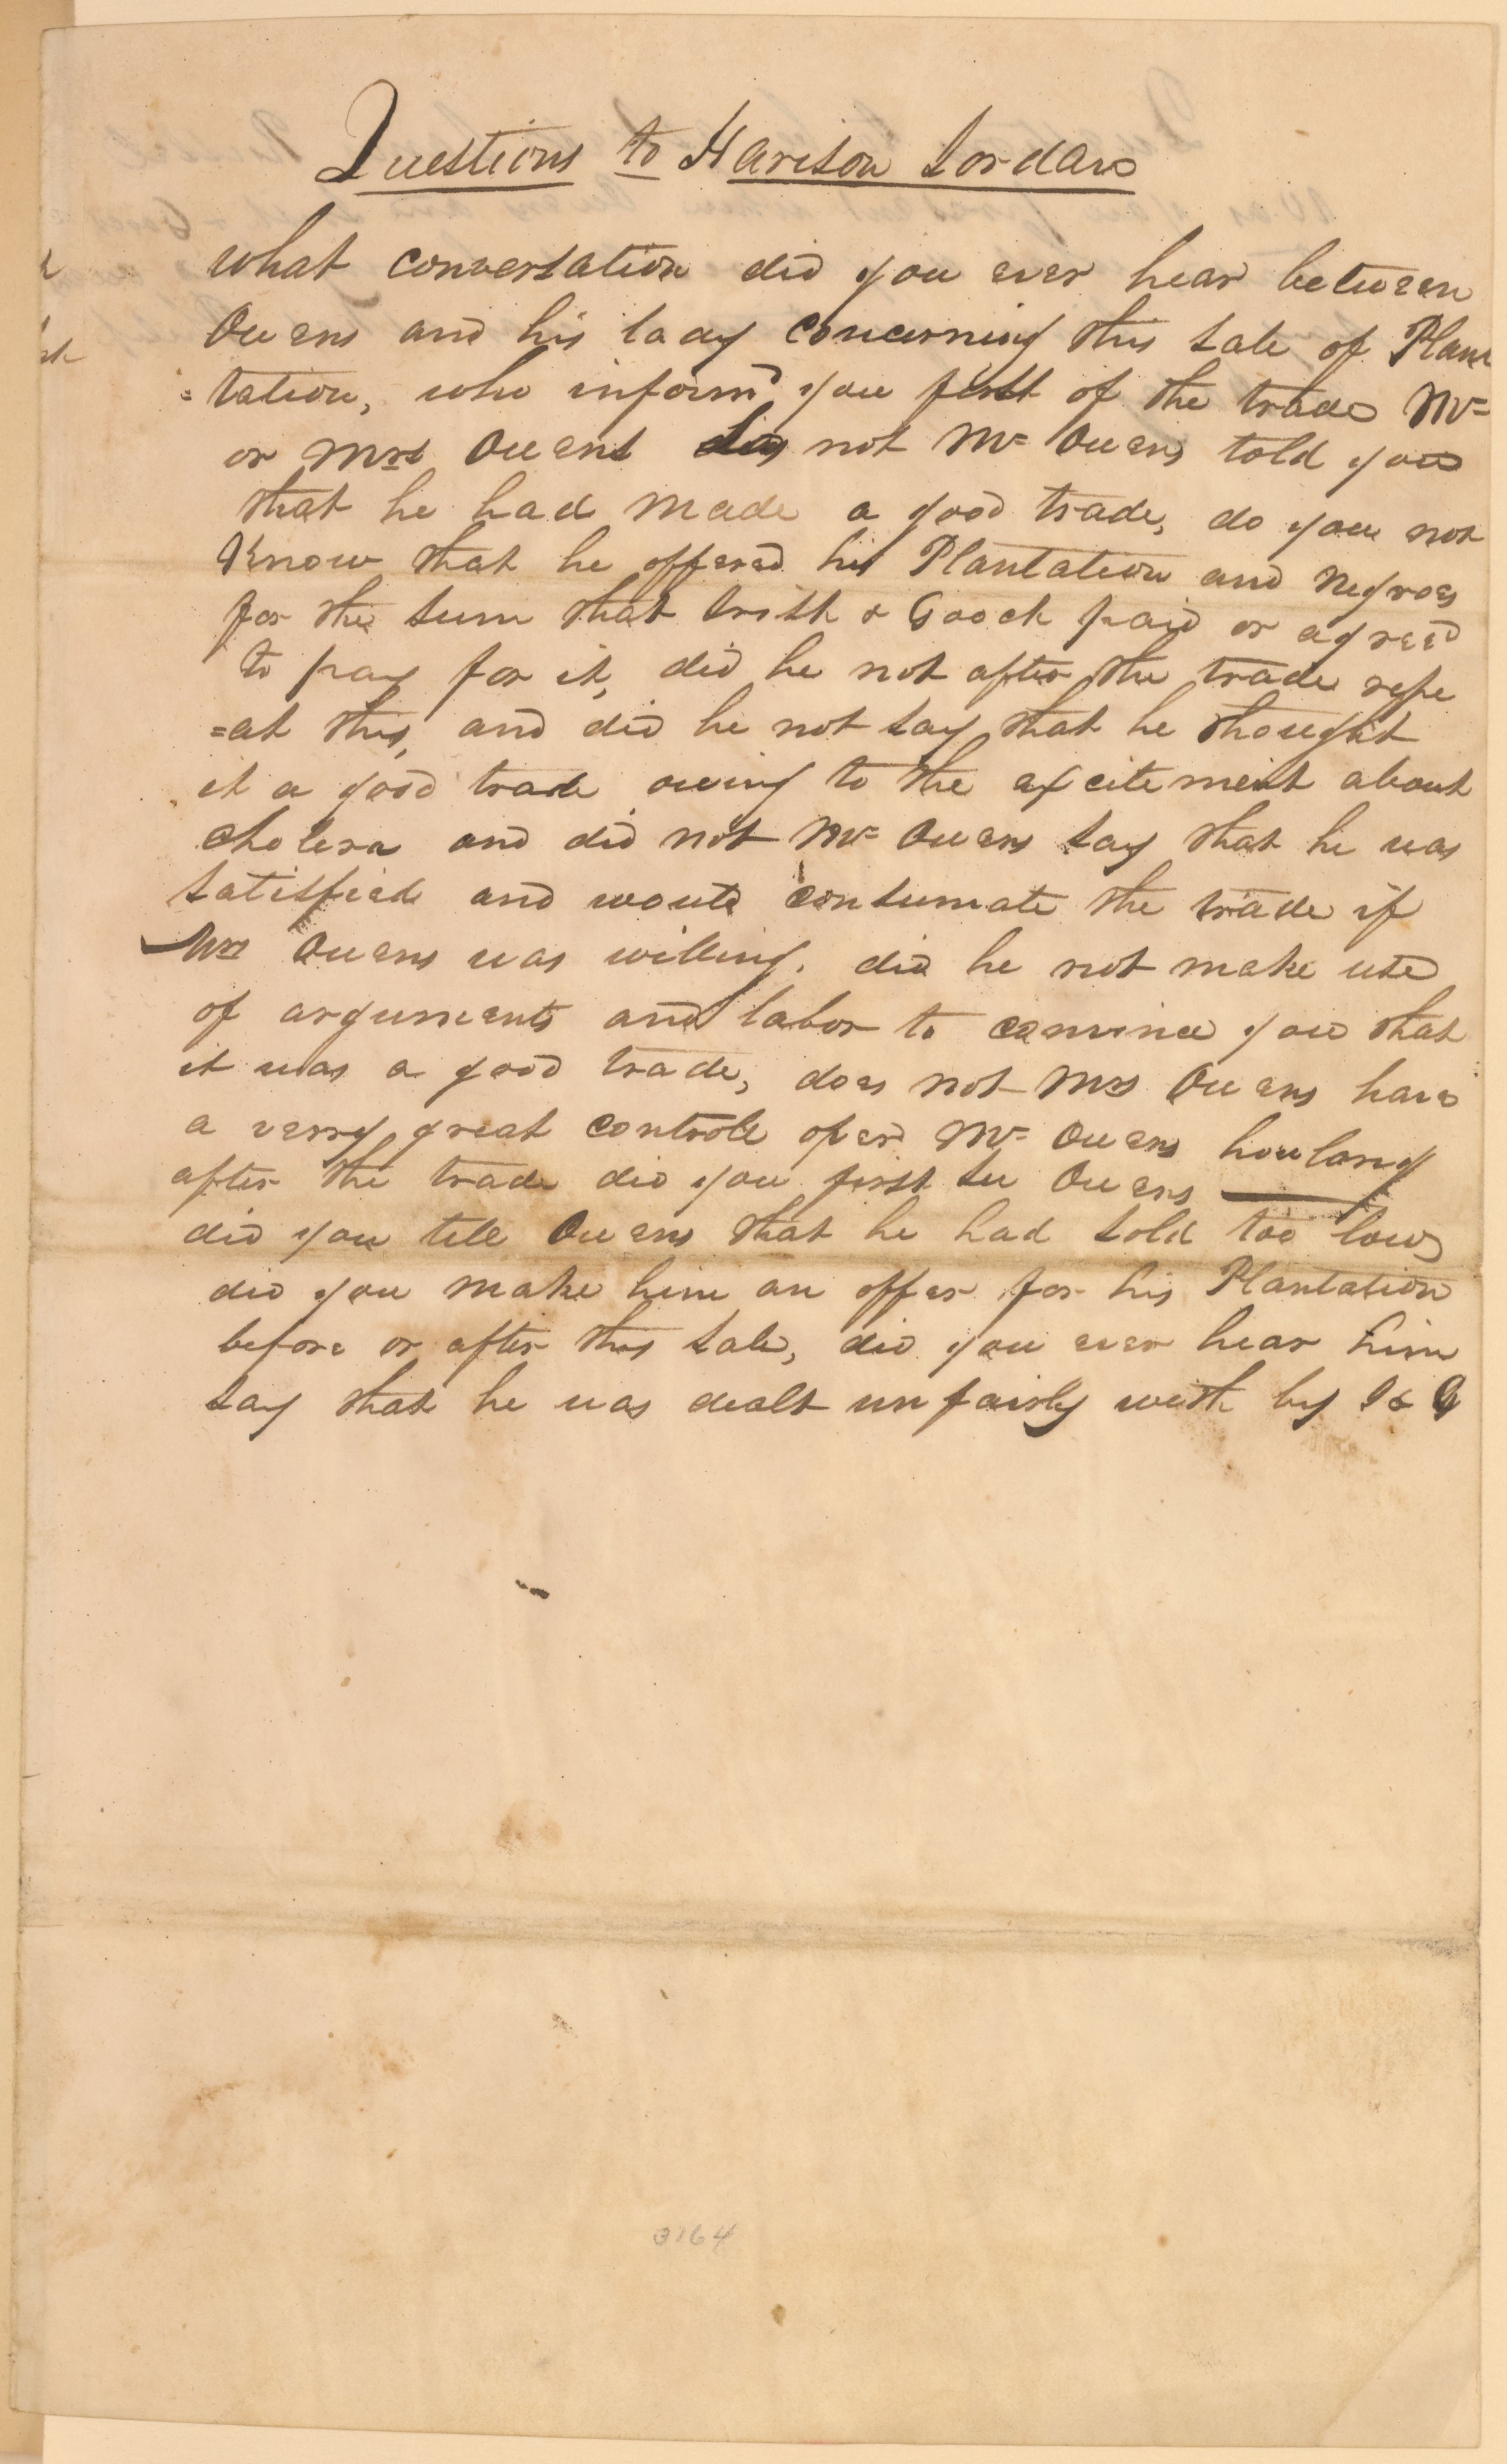 Questions to Harison Jordan
what conversation did you ever hear between
Owens and his lady concerning this sale of Plan
=tation, who inform'd you first of the trade Mr
or Mrs Owens did not Mr Owens told you
that he had made a good trade, do you not
Know that he offered his Plantation and negroes
for the sum that Irish & Gooch paid or agreed
to pay for it, did he not after the trade repe
=at this, and did he not say that he thought
it a good trade owing to the excitement about
cholera and did not Mr Owens say that he was
satisfied and would consumate the trade if
Mrs Owens was willing. did he not make use
of arguments and labor to convince you that
it was a good trade, does not Mrs Owens have
a verry great controle over Mr Owens how long
after the trade did you first see Owens
did you tell Owens that he had sold too low,
did you make him an offer for his Plantation
before or after this sale, did you ever hear him
say that he was dealt unfairly with by I & G
3164